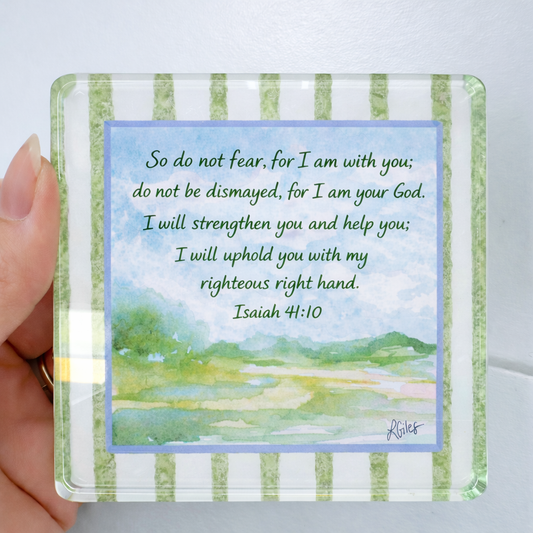 So do not fear, for I am with you;
do not be dismayed, for I am your God.
I will strengthen you and help you;
I will uphold you with my
righteous right hand.
Isaiah 41:10
LGiles